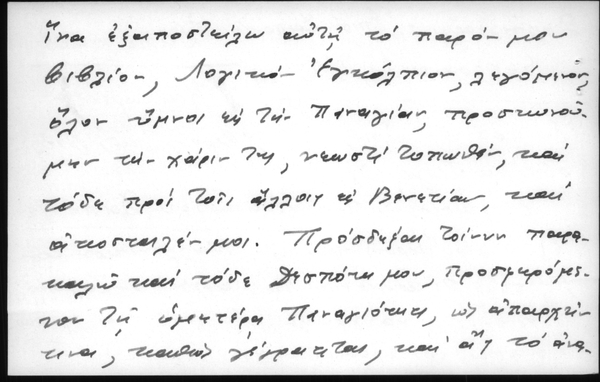 ἵνα ἐξαποστείλω αὐτῇ τό παρόν μου
βιβλίον, Λογικόν Ἐγκόλπιον, λεγόμενον,
ὅλον ὕμνοι εἰς τήν Παναγίαν, προσκυνοῦ-
μεν τήν χάριν της, νεωστί τυπωθέν, καί
τόδε πρός τοῖς ἄλλοις εἰς Βενετίαν, καί
ἀποσταλέν μοι. Πρόσδεξαι τοίνυν παρα-
καλῶ καί τόδε Δεσπότα μου, προσφερόμε-
νον τῇ ὑμετέρᾳ Παναγιότητι, ὡς ἀπαρχήν
τινα, καθώς γέγραπται, καί εἰς τό ἀνα-